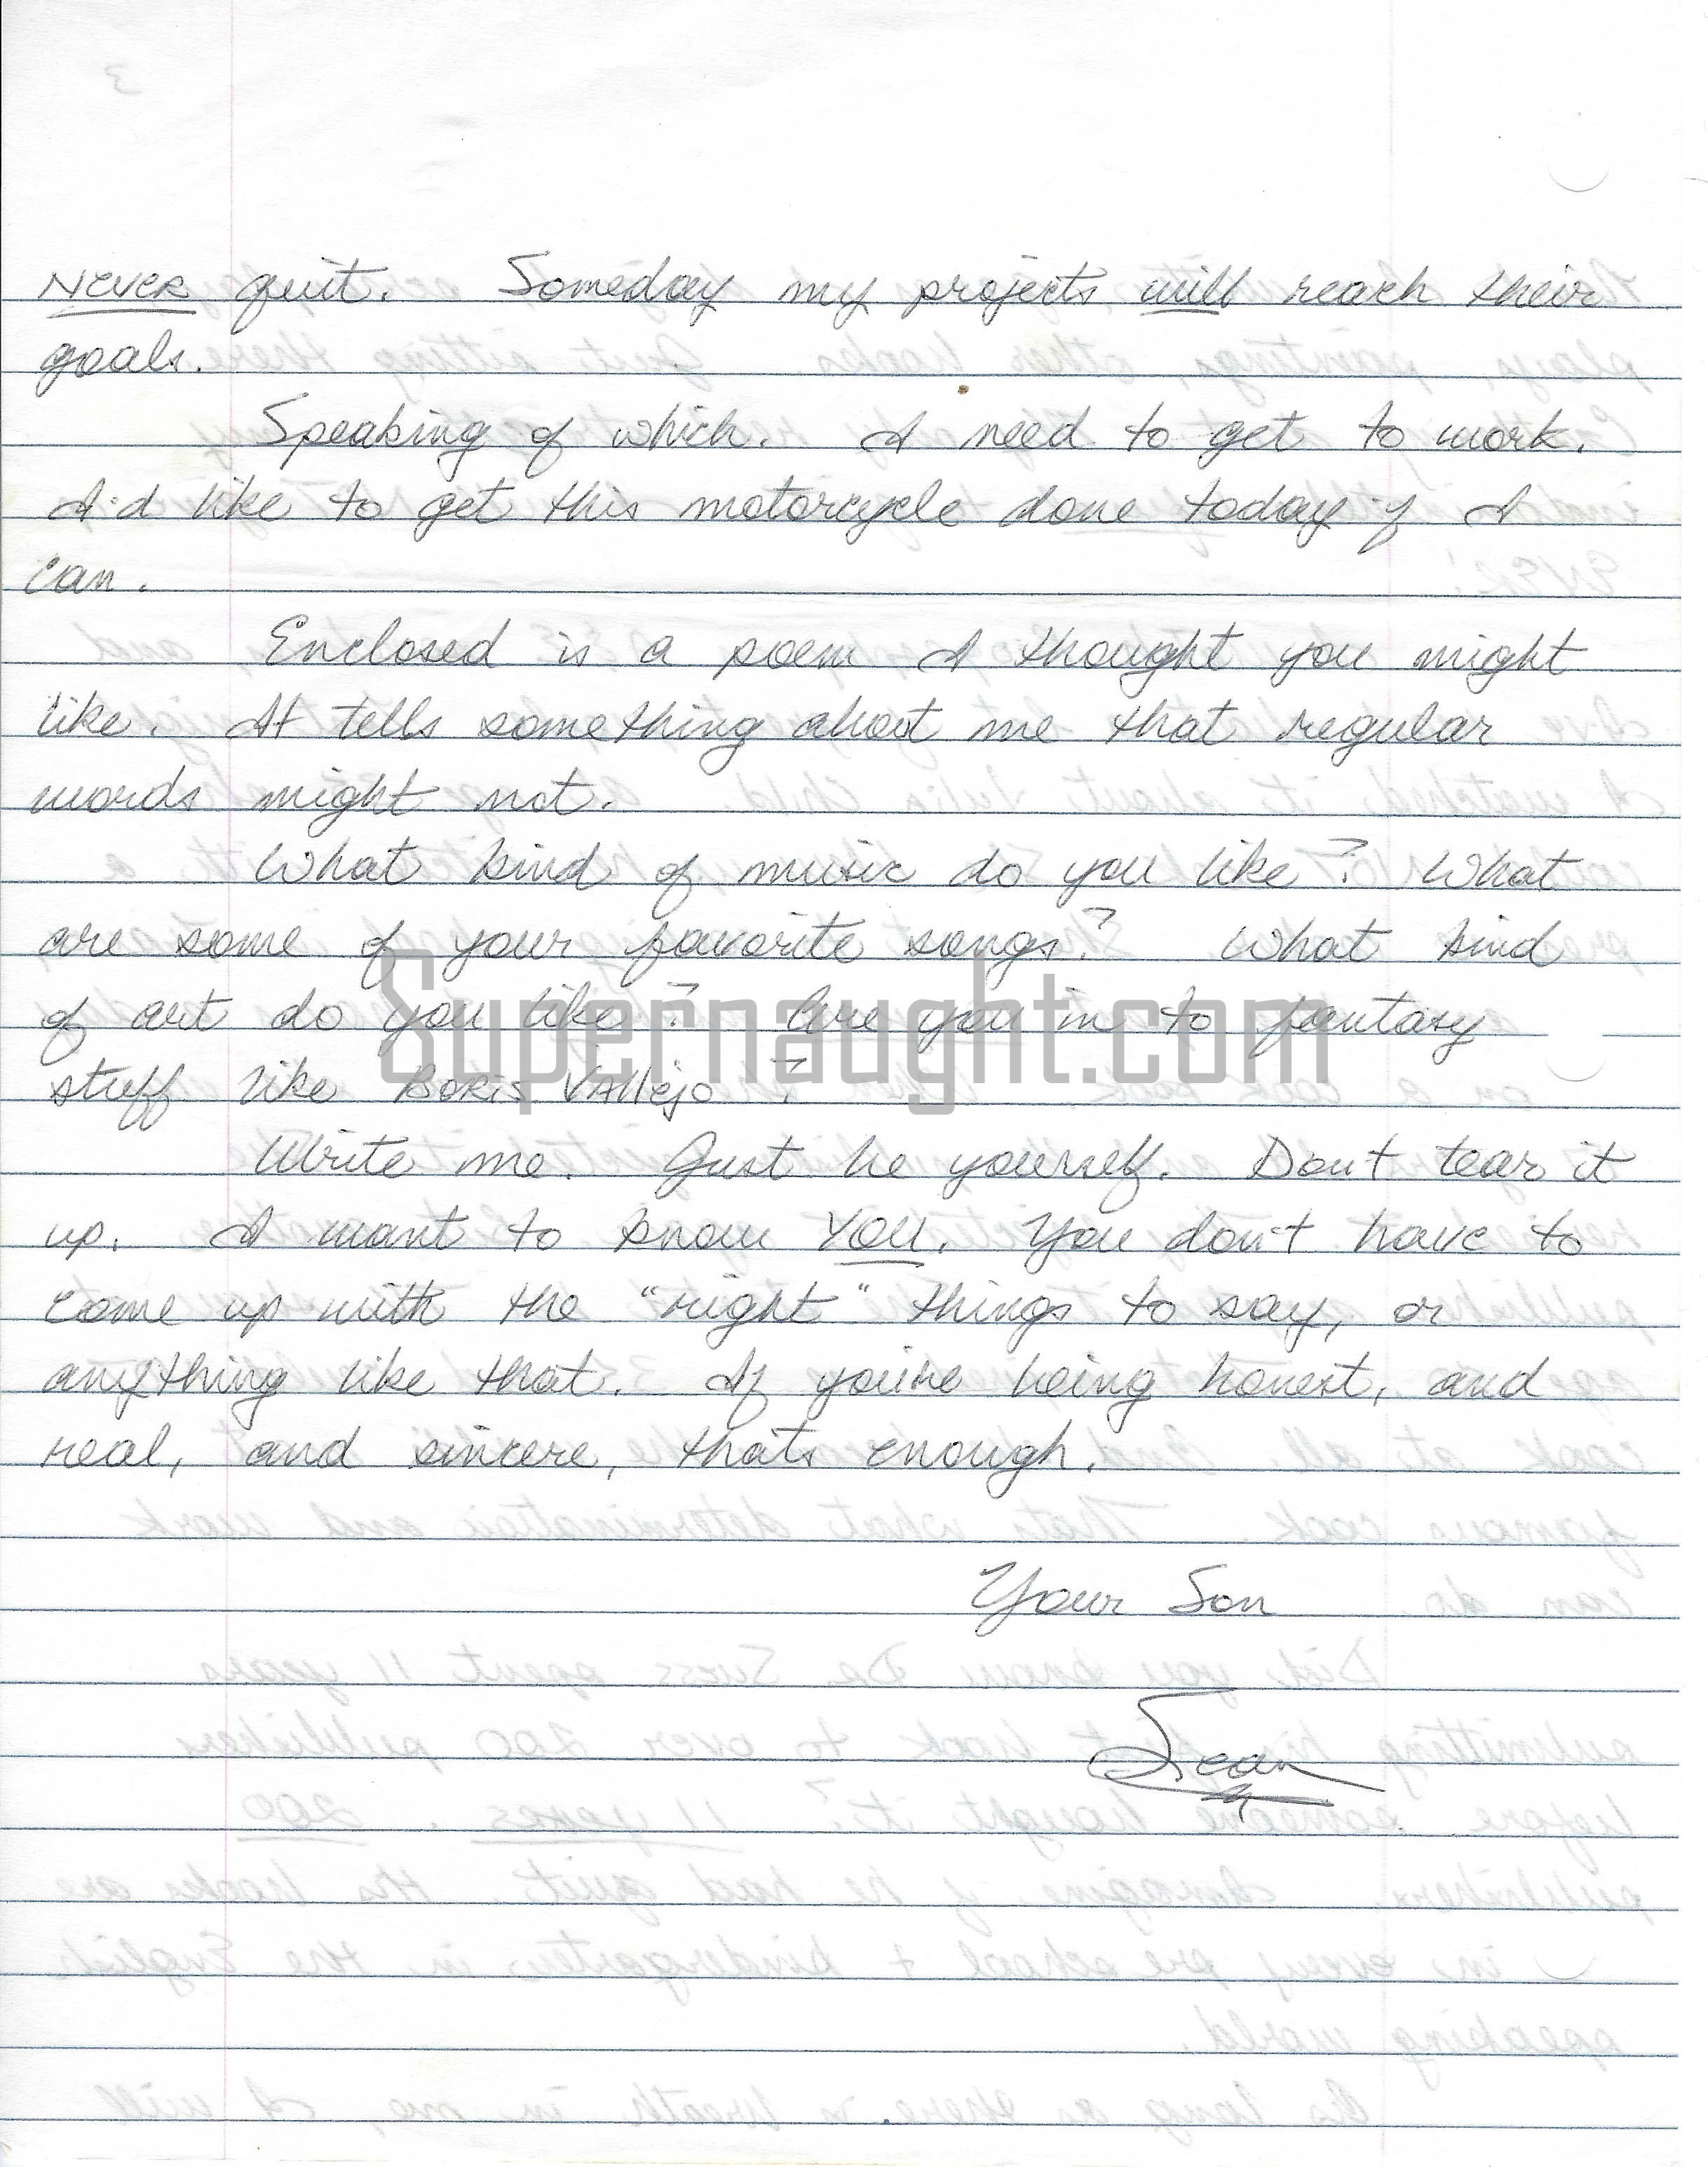 NEVER quit. Someday my projects will reach their
goals.
Speaking of which. I need to get to work.
I'd like to get this motorcycle done today if I
can.
Enclosed is a poem I thought you might
like. It tells something about me that regular
words might not.
What kind of music do you like? What
are some of your favorite songs? What kind
of art do you like? Are you in to fantasy
stuff like BORIS VAllejo?
Write me. Just be yourself. Don't tear it
up. I want to know YOU. You don't have to
come up with the "right" things to say, or
anything like that. If you're being honest, and
real, and sincere, thats enough.
Your Son
Sean
Supernaught.com